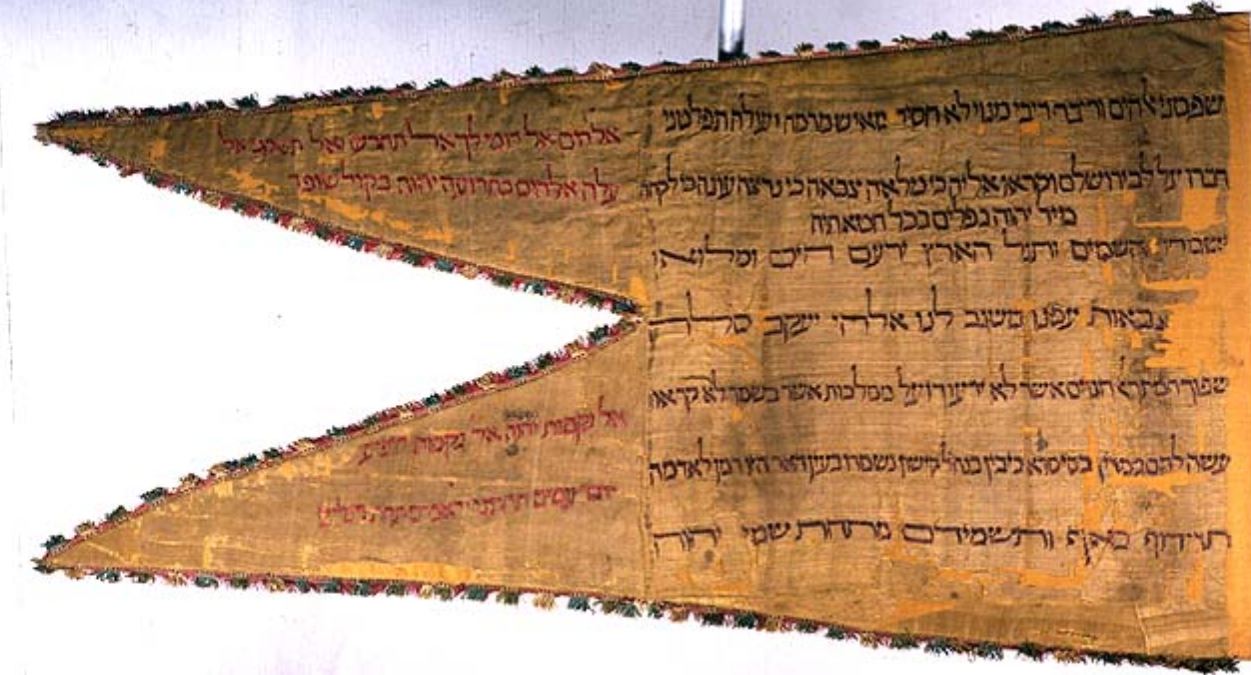 שפטני אלהים וריבה ריבי מגוי לא חסיד מאיש מרמה ועולה תפלטני
דברו על לב ירושלם וקראו אליה כי מלאה צבאה כי נרצה עונה כי לקחה
מיד יהוה כפלים בכל חטאתיה
ישמחו השמים ותגל הארץ ירעם הים ומלואו
צבאות עמנו משגב לנו אלהי יעקב סלה
שפוך חמתך אל הגוים אשר לא ידעוך ועל ממלכות אשר בשמך לא קראו
עשה להם כמדין כסיסרא כיבין בנחל קישון נשמדו בעין דאר היו דמן לאדמה
תרדוף באף ותשמידם מתחת שמי יהוה
אלהים אל דמי לך אל תחרש ואל תשקט אל
עלה אלהים בתרועה יהוה בקול שופר
אל נקמות יהוה אל נקמות הופיע
עמים ולאמים תחת